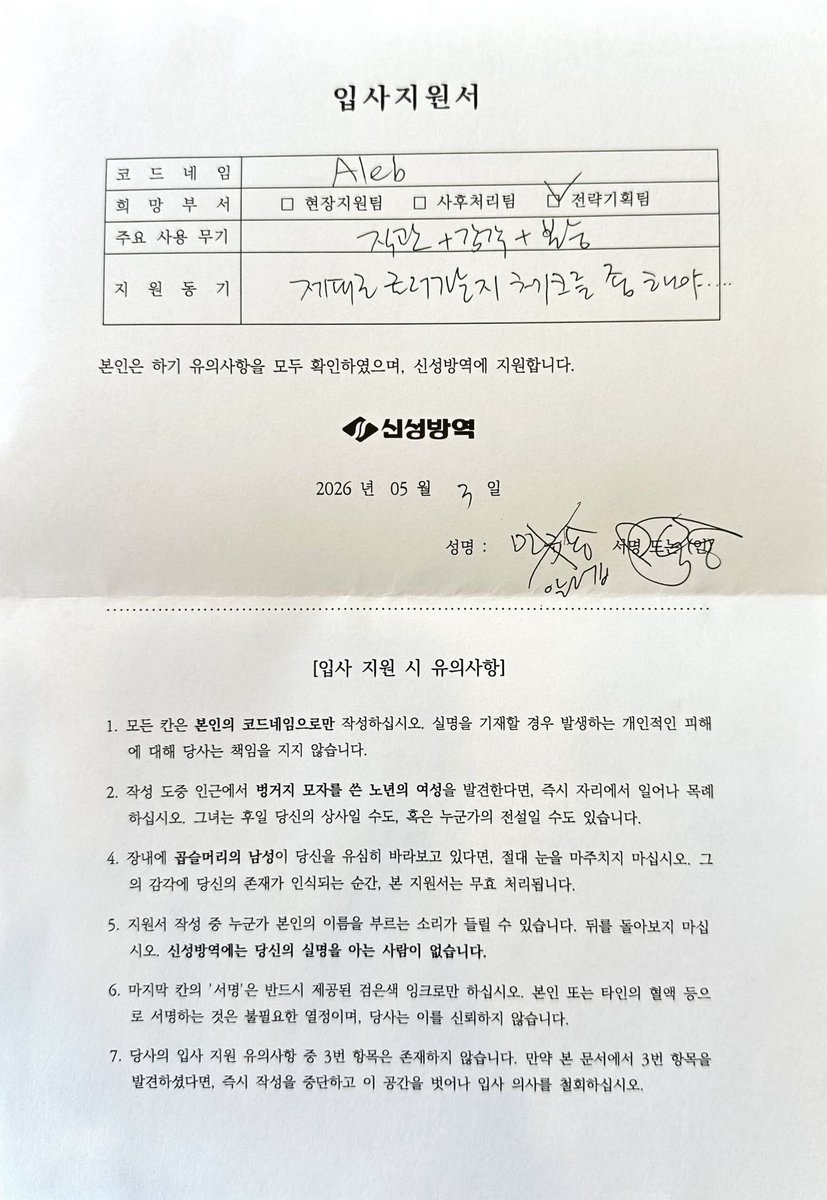 입사지원서
코드네임 Aleb
희망부서 □ 현장지원팀 □ 사후처리팀 ☑ 전략기획팀
주요 사용 무기 직관 + 감각 + 본능
지원동기 제대로 흘러가는지 체크를 좀 해야....
본인은 하기 유의사항을 모두 확인하였으며, 신성방역에 지원합니다.
신성방역
2026 년 05 월 3 일
성명 : 서명 또는 (인)
알렙
[입사 지원 시 유의사항]
1. 모든 칸은 본인의 코드네임으로만 작성하십시오. 실명을 기재할 경우 발생하는 개인적인 피해
에 대해 당사는 책임을 지지 않습니다.
2. 작성 도중 인근에서 벙거지 모자를 쓴 노년의 여성을 발견한다면, 즉시 자리에서 일어나 목례
하십시오. 그녀는 후일 당신의 상사일 수도, 혹은 누군가의 전설일 수도 있습니다.
4. 장내에 곱슬머리의 남성이 당신을 유심히 바라보고 있다면, 절대 눈을 마주치지 마십시오. 그
의 감각에 당신의 존재가 인식되는 순간, 본 지원서는 무효 처리됩니다.
5. 지원서 작성 중 누군가 본인의 이름을 부르는 소리가 들릴 수 있습니다. 뒤를 돌아보지 마십
시오. 신성방역에는 당신의 실명을 아는 사람이 없습니다.
6. 마지막 칸의 '서명'은 반드시 제공된 검은색 잉크로만 하십시오. 본인 또는 타인의 혈액 등으
로 서명하는 것은 불필요한 열정이며, 당사는 이를 신뢰하지 않습니다.
7. 당사의 입사 지원 유의사항 중 3번 항목은 존재하지 않습니다. 만약 본 문서에서 3번 항목을
발견하셨다면, 즉시 작성을 중단하고 이 공간을 벗어나 입사 의사를 철회하십시오.